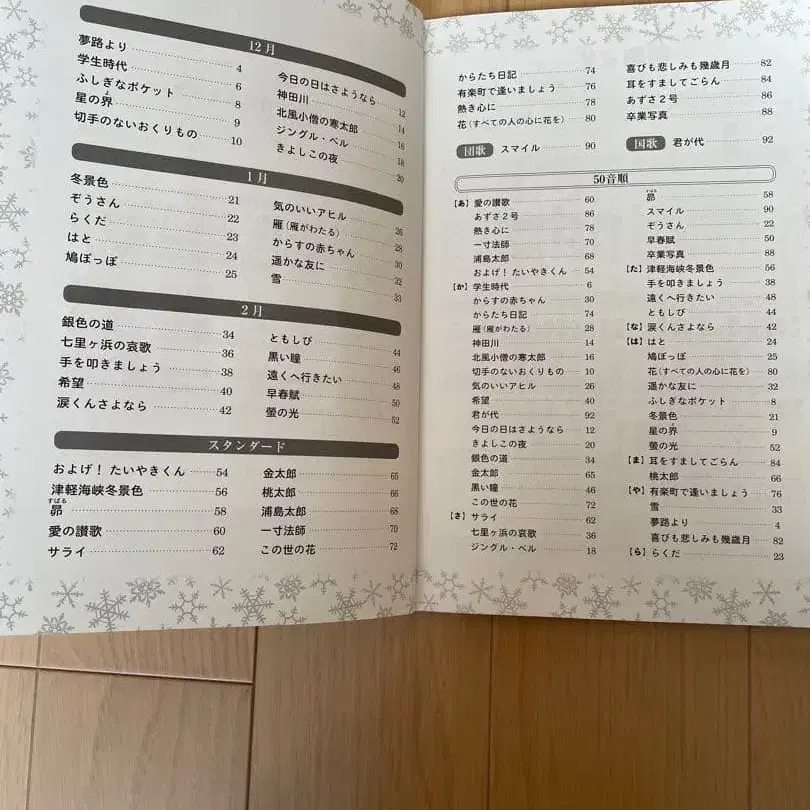 12月
夢路より 4
学生時代 6
ふしぎなポケット 8
星の界 よ 9
切手のないおくりもの 10
今日の日はさようなら 12
神田川 14
北風小僧の寒太郎 16
ジングル・ベル 18
きよしこの夜 20
1月
冬景色 21
ぞうさん 22
らくだ 23
はと 24
鳩ぽっぽ 25
気のいいアヒル 26
雁(雁がわたる) 28
からすの赤ちゃん 30
遥かな友に 32
雪 33
2月
銀色の道 34
七里ヶ浜の哀歌 36
手を叩きましょう 38
希望 40
涙くんさよなら 42
ともしび 44
黒い瞳 46
遠くへ行きたい 48
早春賦 50
螢の光 52
スタンダード
およげ！たいやきくん 54
津軽海峡冬景色 56
昴 すばる 58
愛の讃歌 60
サライ 62
金太郎 65
桃太郎 66
浦島太郎 68
一寸法師 70
この世の花 72
からたち日記 74
有楽町で逢いましょう 76
熱き心に 78
花(すべての人の心に花を) 80
喜びも悲しみも幾歳月 82
耳をすましてごらん 84
あずさ2号 86
卒業写真 88
団歌 スマイル 90
国歌 君が代 92
50音順
【あ】愛の讃歌 60
あずさ2号 86
熱き心に 78
一寸法師 70
浦島太郎 68
およげ！たいやきくん 54
【か】学生時代 6
からすの赤ちゃん 30
からたち日記 74
雁(雁がわたる) 28
神田川 14
北風小僧の寒太郎 16
切手のないおくりもの 10
気のいいアヒル 26
希望 40
君が代 92
今日の日はさようなら 12
きよしこの夜 20
銀色の道 34
金太郎 65
黒い瞳 46
この世の花 72
【さ】サライ 62
七里ヶ浜の哀歌 36
ジングル・ベル 18
昴 すばる 58
スマイル 90
ぞうさん 22
早春賦 50
卒業写真 88
【た】津軽海峡冬景色 56
手を叩きましょう 38
遠くへ行きたい 48
ともしび 44
【な】涙くんさよなら 42
【は】はと 24
鳩ぽっぽ 25
花(すべての人の心に花を) 80
遥かな友に 32
ふしぎなポケット 8
冬景色 21
星の界 9
螢の光 52
【ま】耳をすましてごらん 84
桃太郎 66
【や】有楽町で逢いましょう 76
雪 33
夢路より 4
喜びも悲しみも幾歳月 82
【ら】らくだ 23